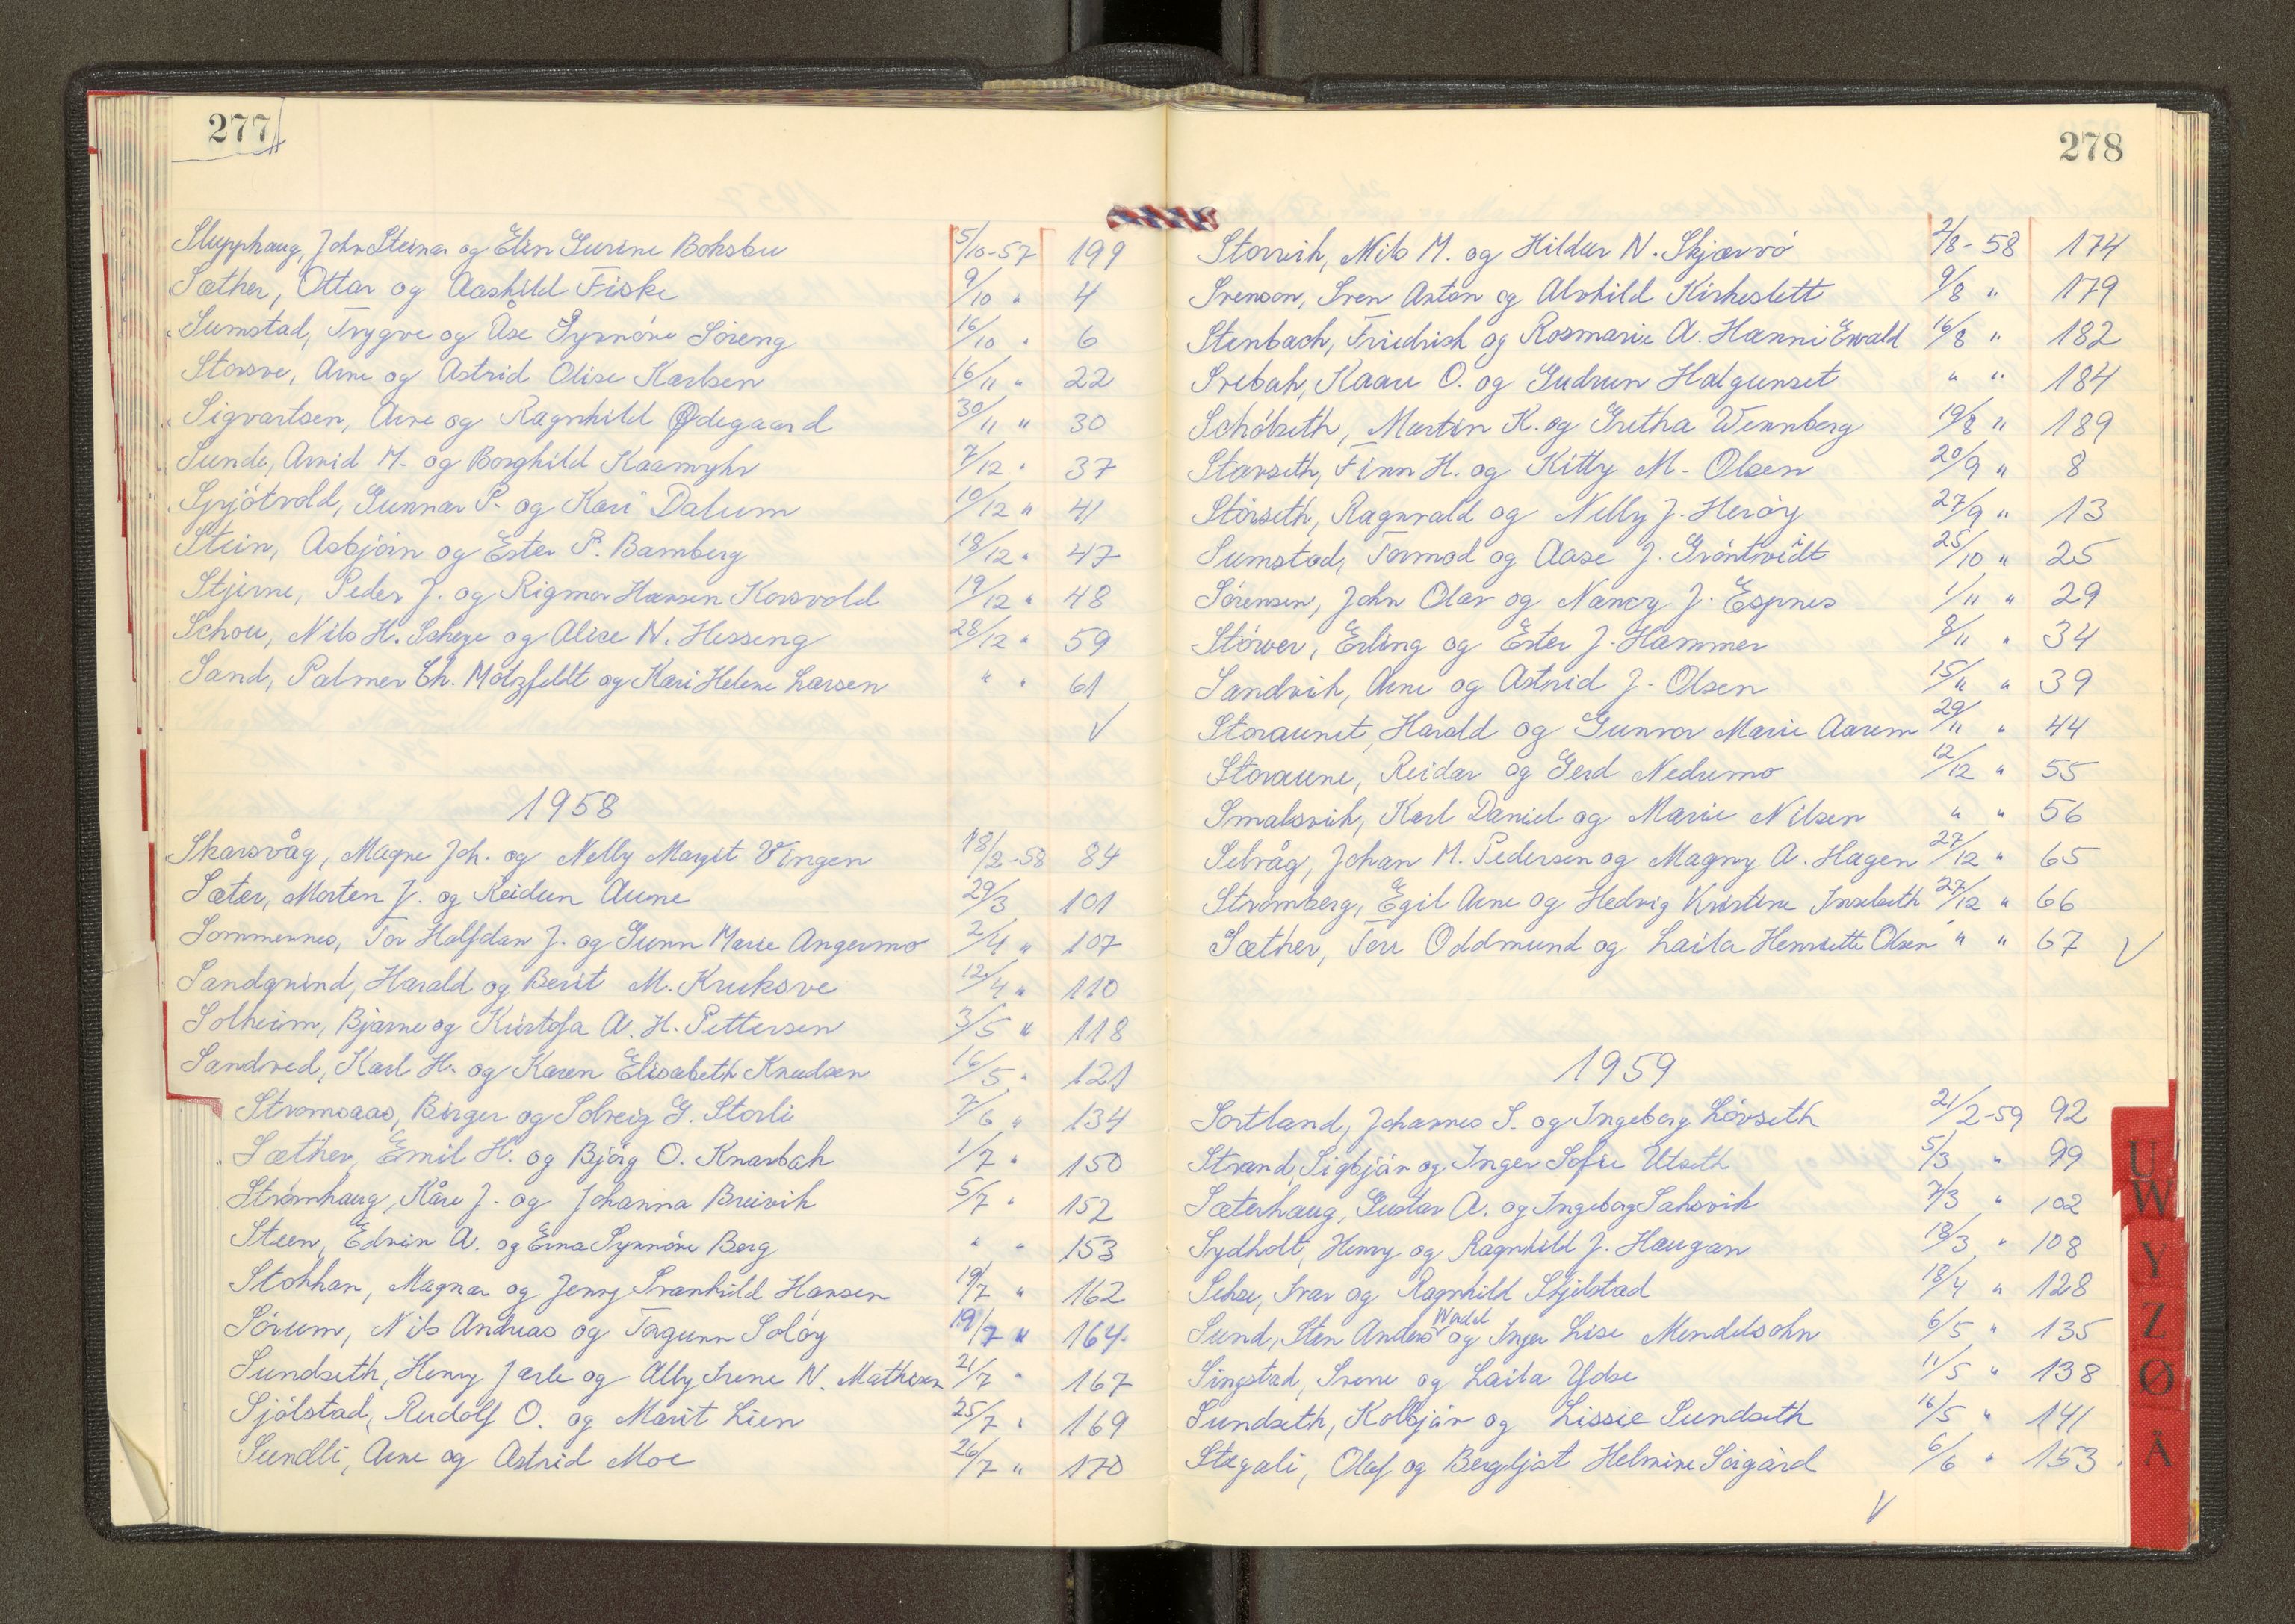 277
Slupphaug, John Steinar og Elin Gurine Boksbu 5/10-57 199
Sæther, Ottar og Aashild Fiske 9/10 " 4
Sumstad, Trygve og Åse Synnöve Söreng 16/10 " 6
Storsve, Arne og Astrid Olise Karlsen 16/11 " 22
Sigvartsen, Arve og Ragnhild Ødegaard 30/11 " 30
Sunde, Arvid M. og Borghild Kaamyhr 7/12 " 37
Spjötvold, Gunnar P. og Kari Dalum 10/12 " 41
Stein, Asbjörn og Ester P. Bamberg 18/12 " 47
Stjerne, Peder J. og Rigmor Hansen Korsvold 19/12 " 48
Schou, Nils H. og Alice N. Hesseng 28/12 " 59
Sand, Palmer Ch. Motzfeldt og Kari Helene Larsen " " 61
V
1958
Skarsvåg, Magne Joh. og Nelly Margit Vingen 18/2-58 84
Sæter, Morten J. og Reidun Aune 29/3 101
Sommernes, Tor Halfdan J. og Gunn Marie Angermo 2/4 " 107
Sandgrind, Harald og Berit M. Kruksve 12/4 " 110
Solheim, Bjarne og Kristofa A. H. Pettersen 3/5 " 118
Sandved, Karl H. og Karen Elisabeth Knudsen 16/5 " 121
Stromsaas, Birger og Solveig G. Storli 7/6 " 134
Sæther, Emil H. og Bjorg O. Knarbak 1/7 " 150
Strömhaug, Kåre J. og Johanna Breivik 5/7 " 152
Steen, Edvin A. og Erna Synnöve Berg " " 153
Stokkan, Magnar og Jenny Svanhild Hansen 19/7 " 162
Sörum, Nils Andreas og Torgunn Solöy 19/7 " 164
Sundseth, Henry Jarle og Ally Irene N. Mathisen 21/7 " 167
Sjölstad, Rudolf O. og Marit Lien 25/7 " 169
Sundli, Arne og Astrid Moe 26/7 " 170
278
Storvik, Nils M. og Hildur N. Skjærvö 2/8-58 174
Svenson, Sven Anton og Alvhild Kirkeslett 9/8 " 179
Stenbach, Friedrich og Rosmarie A. Hanni Ewald 16/8 " 182
Svebak, Kaare O. og Gudrun Halgunset " " 184
Schölseth, Martin K. og Gretha Wennberg 19/8 " 189
Stavseth, Finn H. og Kitty M. Olsen 20/9 " 8
Störseth, Ragnvald og Nelly J. Heröy 27/9 " 13
Sumstad, Tormod og Aase J. Gröntvedt 25/10 " 25
Sörensen, John Olav og Nancy J. Espnes 1/11 " 29
Störver, Erling og Ester J. Hammer 8/11 " 34
Sandvik, Arne og Astrid J. Olsen 15/11 " 39
Storaunet, Harald og Gunvor Marie Aarem 29/11 " 44
Storaune, Reidar og Gerd Nedremo 12/12 " 55
Smalsvik, Karl Daniel og Marie Nilsen " " 56
Selvåg, Johan M. Pedersen og Magny A. Hagen 27/12 " 65
Strømberg, Egil Arne og Hedvig Kristine Inselseth 27/12 " 66
Sæther, Tore Oddmund og Laila Henriette Olsen " " 67 V
1959
Sortland, Johannes S. og Ingeborg Lövseth 21/2-59 92
Strand, Sigbjön og Inger Sofie Utseth 5/3 " 99
Sæterhaug, Gustav A. og Ingeborg Saksvik 7/3 " 102
Sydholt, Henry og Ragnhild J. Haugan 18/3 " 108
Sehse, Ivar og Ragnhild Skjelstad 18/4 " 128
Wadel
Sund, Sten Anders og Inger Lise Mendelsohn 6/5 " 135
Singstad, Sverre og Laila Ydse 11/5 " 138
Sundseth, Kolbjön og Lissie Sundseth 16/5 " 141
Stegali, Olaf og Bergljot Helmine Sörgård 6/6 " 153
V
U
W
Y
Z
Ø
Å